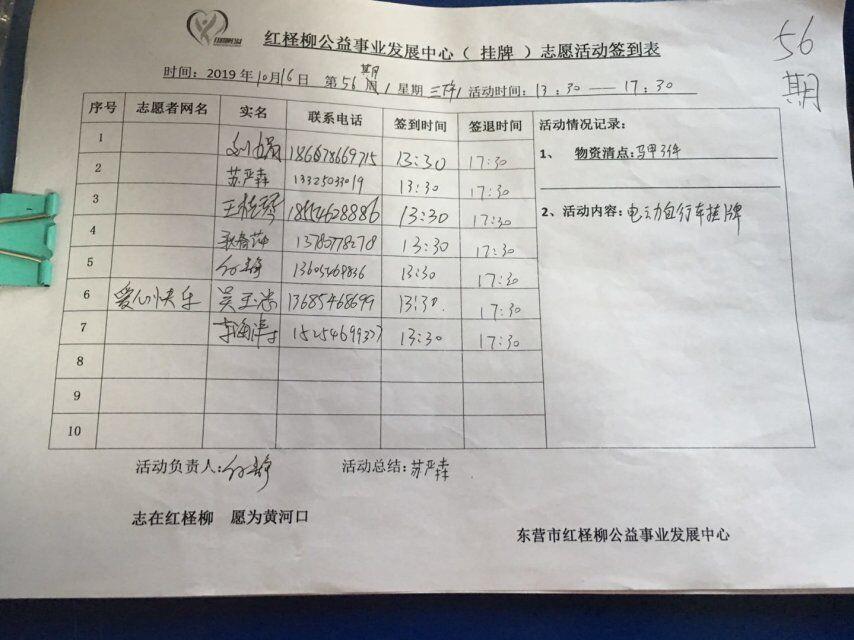 红柽柳公益事业发展中心（ 挂牌 ）志愿活动签到表
56期
时间：2019年10月16日 第56周期 / 星期三下午/ 活动时间：13:30 — 17:30
序号 志愿者网名 实名 联系电话 签到时间 签退时间 活动情况记录：
1 18678669715 13:30 17:30
1、 物资清点：马甲3件
2 苏严森 13325033019 13:30 17:30
3 13:30 17:30
2、活动内容：电动自行车挂牌
4 13780778278 13:30 17:30
5 13:30 17:30
6 爱心快乐 吴玉忠 13685468699 13:30 17:30
7 李海涛 13:30 17:30
8
9
10
活动负责人： 活动总结：苏严森
志在红柽柳 愿为黄河口
东营市红柽柳公益事业发展中心